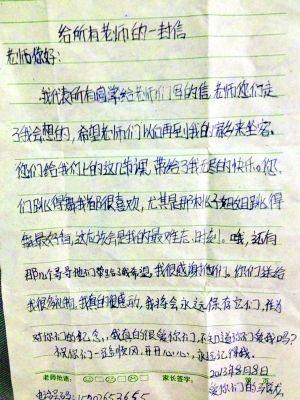 给所有老师的一封信
老师你好：
我代表所有同学给老师们写的信，老师您们走
了我会想的，希望老师们以后再到我的家乡来坐客。
您们给我们上的这几节课，带给了我无尽的快乐。您
们跳得舞我都很喜欢，尤其是那 姐姐跳得
舞最好看，这应该会是我的最难忘 时刻。哦，还有
那几个哥哥他们带给了我 ，我很感谢他们。你们送给
我很多礼物，我真的很感动，我将会永远保存它们，作为
对你们的纪念，我真的很爱你们，不知道你们爱我吗？
祝你们一路顺风，开开心心，永远记得我。
老师批语： 家长签字：
2013年8月8日
爱你们的
653655